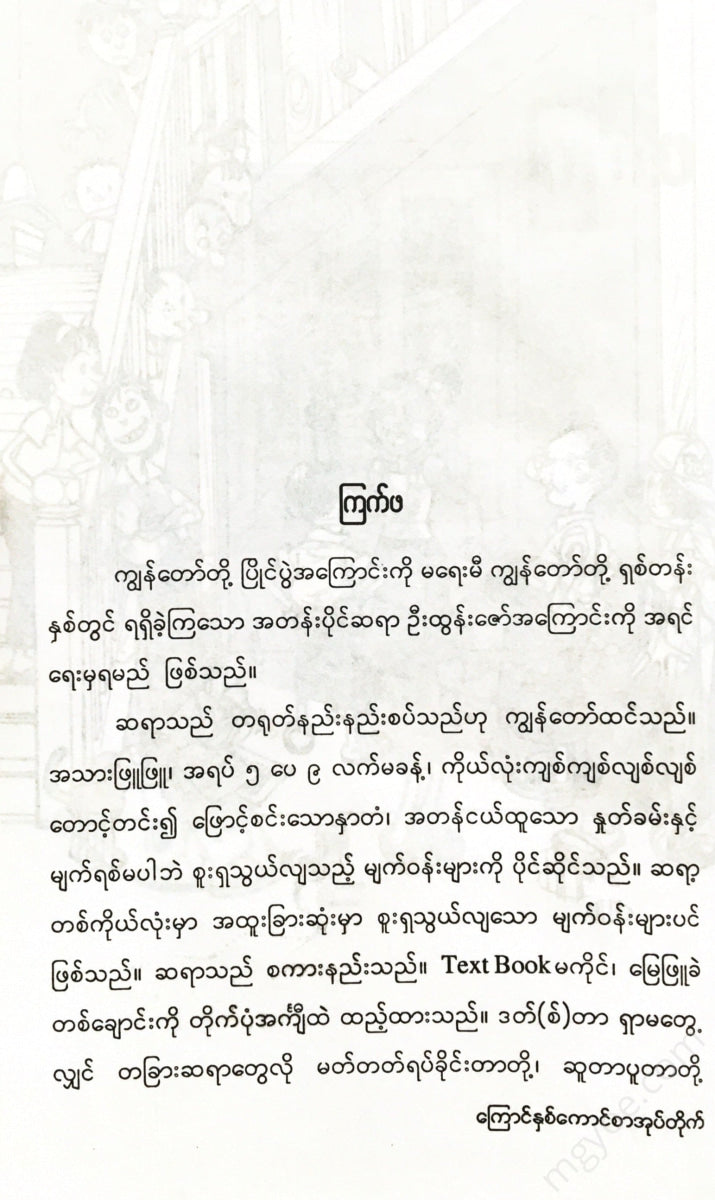 ကြက်ဖ
ကျွန်တော်တို့ ပြိုင်ပွဲအကြောင်းကို မရေးမီ ကျွန်တော်တို့ ရှစ်တန်း
နှစ်တွင် ရရှိခဲ့ကြသော အတန်းပိုင်ဆရာ ဦးထွန်းဇော်အကြောင်းကို အရင်
ရေးမှရမည် ဖြစ်သည်။
ဆရာသည် တရုတ်နည်းနည်းစပ်သည်ဟု ကျွန်တော်ထင်သည်။
အသားဖြူဖြူ၊ အရပ် ၅ ပေ ၉ လက်မခန့်၊ ကိုယ်လုံးကျစ်ကျစ်လျစ်လျစ်
တောင့်တင်း၍ ဖြောင့်စင်းသောနှာတံ၊ အတန်ငယ်ထူသော နှုတ်ခမ်းနှင့်
မျက်ရစ်မပါဘဲ စူးရှသွယ်လျသည့် မျက်ဝန်းများကို ပိုင်ဆိုင်သည်။ ဆရာ့
တစ်ကိုယ်လုံးမှာ အထူးခြားဆုံးမှာ စူးရှသွယ်လျသော မျက်ဝန်းများပင်
ဖြစ်သည်။ ဆရာသည် စကားနည်းသည်။ Text Book မကိုင်၊ မြေဖြူခဲ
တစ်ချောင်းကို တိုက်ပုံအင်္ကျီထဲ ထည့်ထားသည်။ ဒတ်(စ်)တာ ရှာမတွေ့
လျှင် တခြားဆရာတွေလို မတ်တတ်ရပ်ခိုင်းတာတို့၊ ဆူတာပူတာတို့
ကြောင်နှစ်ကောင်စာအုပ်တိုက်
mgyoe.com